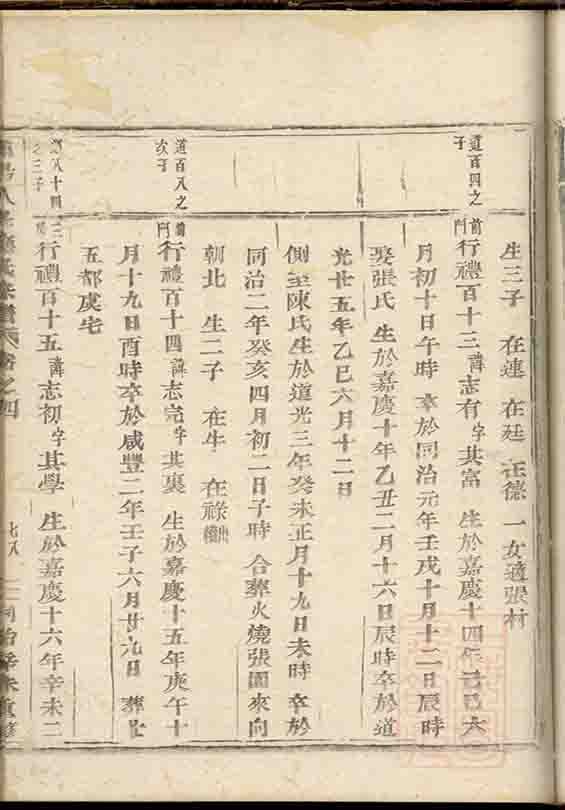 生三子 在連 在廷 在德 一女適張村
道百四之子
前門行禮百十三諱志有字其富 生於嘉慶十四年己巳六
月初十日午時 卒於同治元年壬戌十月十二日辰時
娶張氏 生於嘉慶十年乙丑二月十六日辰時卒於道
光廿五年乙巳六月十二日
側室陳氏生於道光三年癸未正月十九日未時 卒於
同治二年癸亥四月初二日子時 合葬火燒張園來向
朝北 生二子 在牛 在祿
道百八之次子
前門行禮百十四諱志完字其裏 生於嘉慶十五年庚午十
月十九日酉時卒於咸豐二年壬子六月廿九日 葬廿
五都虞宅
道八十四之三子
行禮百十五諱志初字其學 生於嘉慶十六年辛未二
氏宗譜 卷之四 七八 同治辛未重修